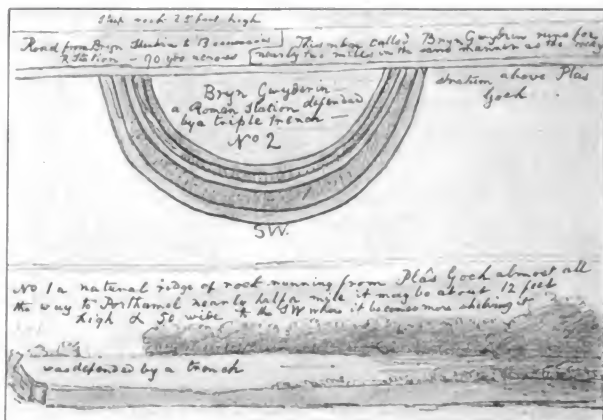 Steep rock 25 feet high
Road from Bryn Shenkin to B
R Station — 90 yds across
This when called Bryn Gwyderin runs for
nearly two miles in the same manner as the rocky
stratum above Plas
Goch
Bryn Gwyderin
a Roman Station defended
by a triple trench —
No 2
SW.
No 1 a natural ridge of rock running from Plas Goch almost all
the way to Porthamel nearly half a mile it may be about 12 feet
high & 50 wide to the SW where it becomes more shelving it
was defended by a trench